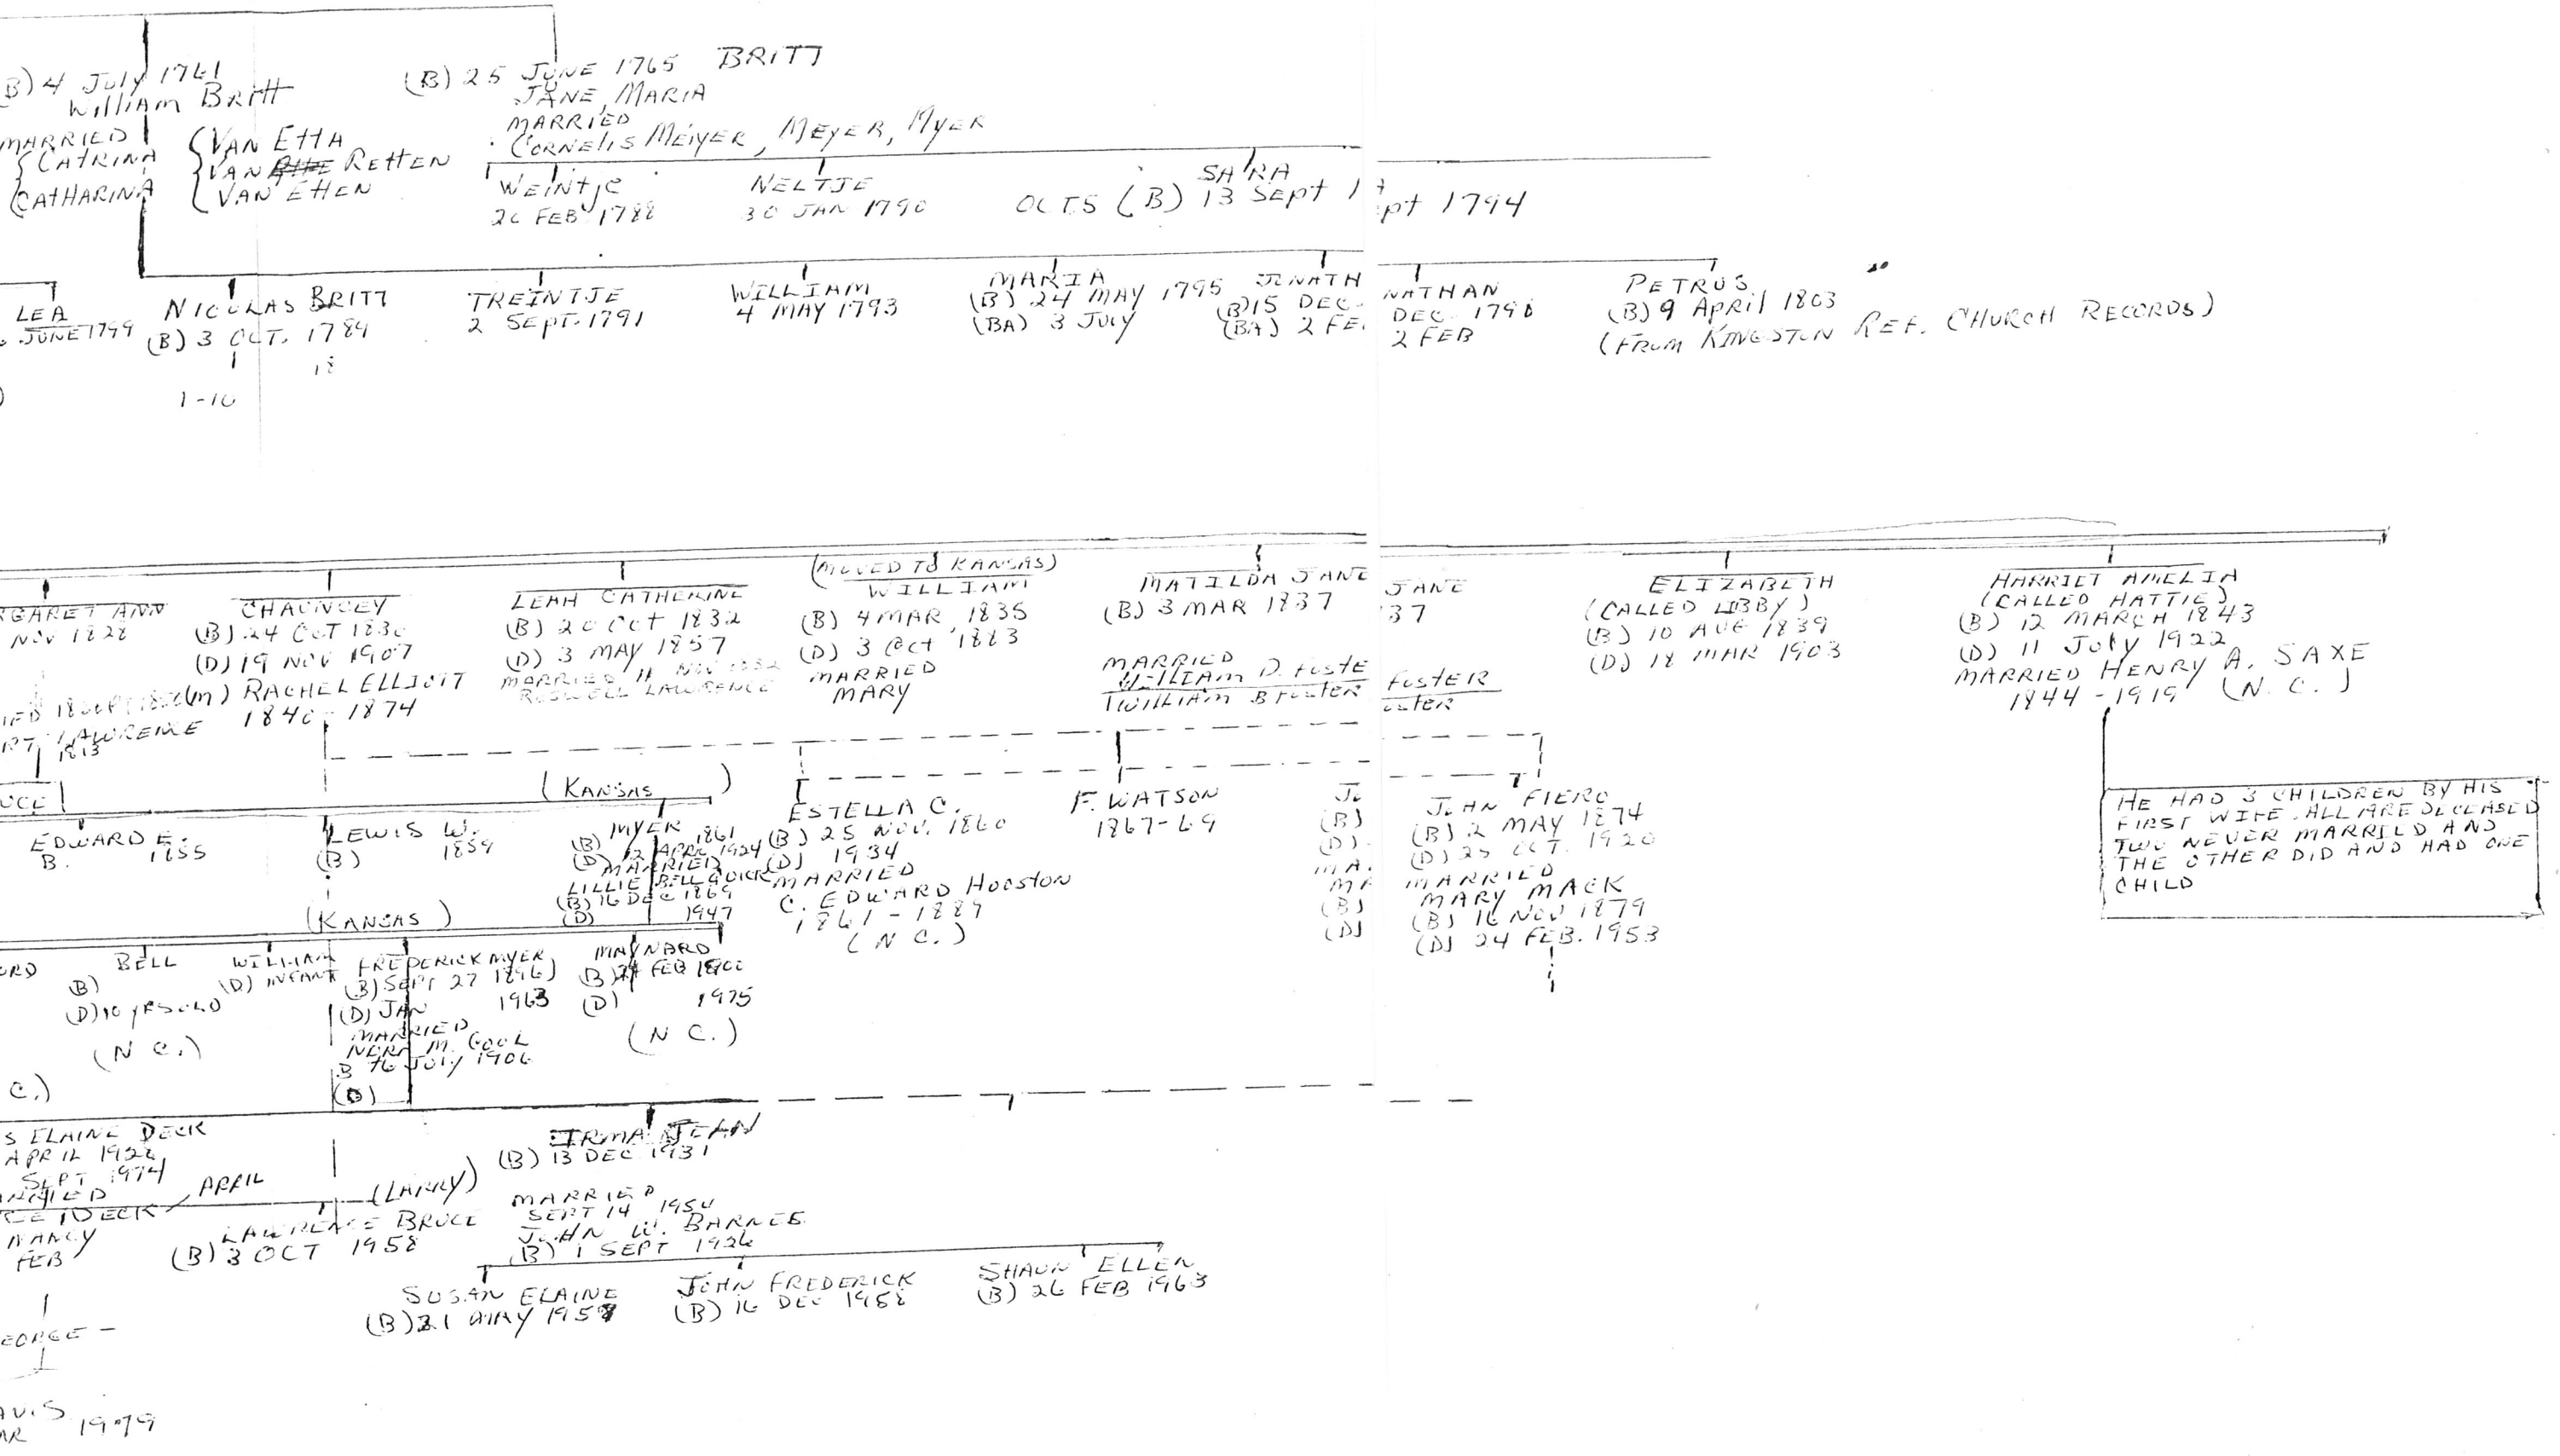 (B) 4 July 1761
William Britt
MARRIED
{ CATRINA
CATHARINA
{ VAN ETTA
VAN RETTEN
VAN ETTEN
(B) 25 JUNE 1765 BRITT
JANE, MARIA
MARRIED
CORNELIS MEIYER, MEYER, MYER
WEINTJE
26 FEB 1788
NELTJE
30 JAN 1790
SARA
OCT 5 (B) 13 Sept 1
pt 1794
LEA
JUNE 1799
NICOLAS BRITT
(B) 3 OCT. 1789
1-10
TREINTJE
2 SEPT. 1791
WILLIAM
4 MAY 1793
MARIA
(B) 24 MAY 1795
(BA) 3 JULY
JONATH
(B) 15 DEC.
(BA) 2 FE
NATHAN
DEC. 1798
2 FEB
PETRUS
(B) 9 APRIL 1803
(FROM KINGSTON REF. CHURCH RECORDS)
RGARET ANN
NOV 1828
IED
RT LAWRENCE
1813
CHAUNCEY
(B) 24 OCT 1830
(D) 19 NOV 1907
(m) RACHEL ELLIOTT
1840 - 1874
LEAH CATHERINE
(B) 20 OCT 1832
(D) 3 MAY 1857
MARRIED 11 NOV 1852
ROSWELL LAWRENCE
(MOVED TO KANSAS)
WILLIAM
(B) 4 MAR, 1835
(D) 3 OCT 1883
MARRIED
MARY
MATILDA JANE
(B) 3 MAR 1837
MARRIED
WILLIAM D. FOSTE
WILLIAM B FOSTER
JANE
37
FOSTER
OSTER
ELIZABETH
(CALLED LIBBY)
(B) 10 AUG 1839
(D) 18 MAR 1903
HARRIET AMELIA
(CALLED HATTIE)
(B) 12 MARCH 1843
(D) 11 JULY 1922
MARRIED HENRY A. SAXE
1844 - 1919 (N. C.)
HE HAD 3 CHILDREN BY HIS
FIRST WIFE. ALL ARE DECEASED
TWO NEVER MARRIED AND
THE OTHER DID AND HAD ONE
CHILD
UCE
(KANSAS)
EDWARD E.
B. 1855
LEWIS W.
(B) 1859
MYER
(B) 1861
(D) 12 APRIL 1924
MARRIED
LILLIE BELL QUICK
(B) 16 DEC 1869
(D) 1947
ESTELLA C.
(B) 25 NOV. 1860
(D) 1934
MARRIED
C. EDWARD HOOSTON
1861 - 1889
(N C.)
F. WATSON
1867-69
JO
(B)
(D)
MA
MA
(B)
(D)
JOHN FIERO
(B) 2 MAY 1874
(D) 25 OCT. 1920
MARRIED
MARY MACK
(B) 16 NOV 1879
(D) 24 FEB. 1953
(KANSAS)
ORD
C.)
BELL
(B)
(D) 10 YRS OLD
(N C.)
WILLIAM
(D) INFANT
FREDERICK MYER
(B) SEPT 27 1896)
(D) JAN 1963
MARRIED
M. COOL
B 16 JULY 1906
(D)
MAYNARD
(B) 24 FEB 1900
(D) 1975
(N C.)
S ELAINE DECK
APRIL 1928
SEPT 1974
MARRIED
CE DECK
NANCY
FEB
APRIL
(LARRY)
LAWRENCE BRUCE
(B) 3 OCT 1958
IRMA JEAN
(B) 13 DEC 1931
MARRIED
SEPT 14 1954
JOHN W. BARNES
(B) 1 SEPT 1926
SUSAN ELAINE
(B) 21 MAY 1957
JOHN FREDERICK
(B) 16 DEC 1958
SHAUN ELLEN
(B) 26 FEB 1963
EORGE -
AVIS
AR 1979